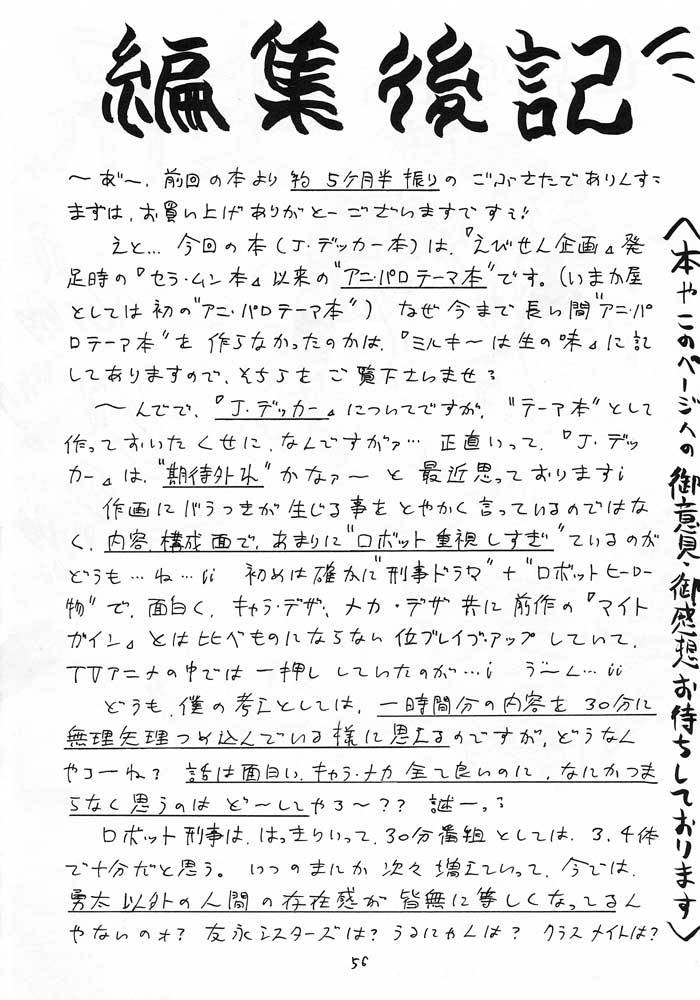 編集後記
〜あ゛〜、前回の本より 約 5ヶ月半 振りの ごぶさたでありんす
まずは、お買い上げ ありがとーございますですぅ
えと… 今回の本(J・デッカー本)は、『えびせん企画』発
足時の『セラ・ムン本』以来の"アニ・パロテーマ本"です。(いまか屋
としては初の"アニ・パロテーマ本") なぜ今まで長い間"アニ・パ
ロテーマ本"を 作らなかったのかは、『ミルキ〜は生の味』に記
してありますので、そちらを ご覧下さいませ
〜んでで、『J・デッカー』についてですが、"テーマ本"として
作っておいたくせに、なんですがァ… 正直いって、『J・デッ
カー』は、"期待外れ"かなァ〜 と 最近思っております
作画にバラつきが生じる事をとやかく言っているのではな
く、内容、構成面で、あまりに"ロボット重視しすぎ"ているのが
どうも…ね… 初めは確かに"刑事ドラマ"+"ロボットヒーロー
物"で、面白く、キャラ・デザ、メカ・デザ 共に 前作の『マイト
ガイン』とは比べものにならない位ブレイブ・アップしていて、
TVアニメの中では 一押し していたのが… う〜ん…
どうも、僕の考えとしては、一時間分の内容を 30分に
無理矢理つめ込んでいる様に思えるのですが、どうなん
やろーね? 話は面白い、キャラ・メカ 全て良いのに、なにかつま
らなく思うのは ど〜してやろ〜?? 謎ーっ
ロボット刑事は、はっきりいって、30分番組としては、3、4体
で十分だと思う。 いつのまにか 次々 増えていって、今では、
勇太以外の人間の存在感が皆無に等しくなってるん
やないのォ? 友永シスターズは? うるにゃんは? クラスメイトは?
56
〈本やこのページへの御意見・御感想お待ちしております〉